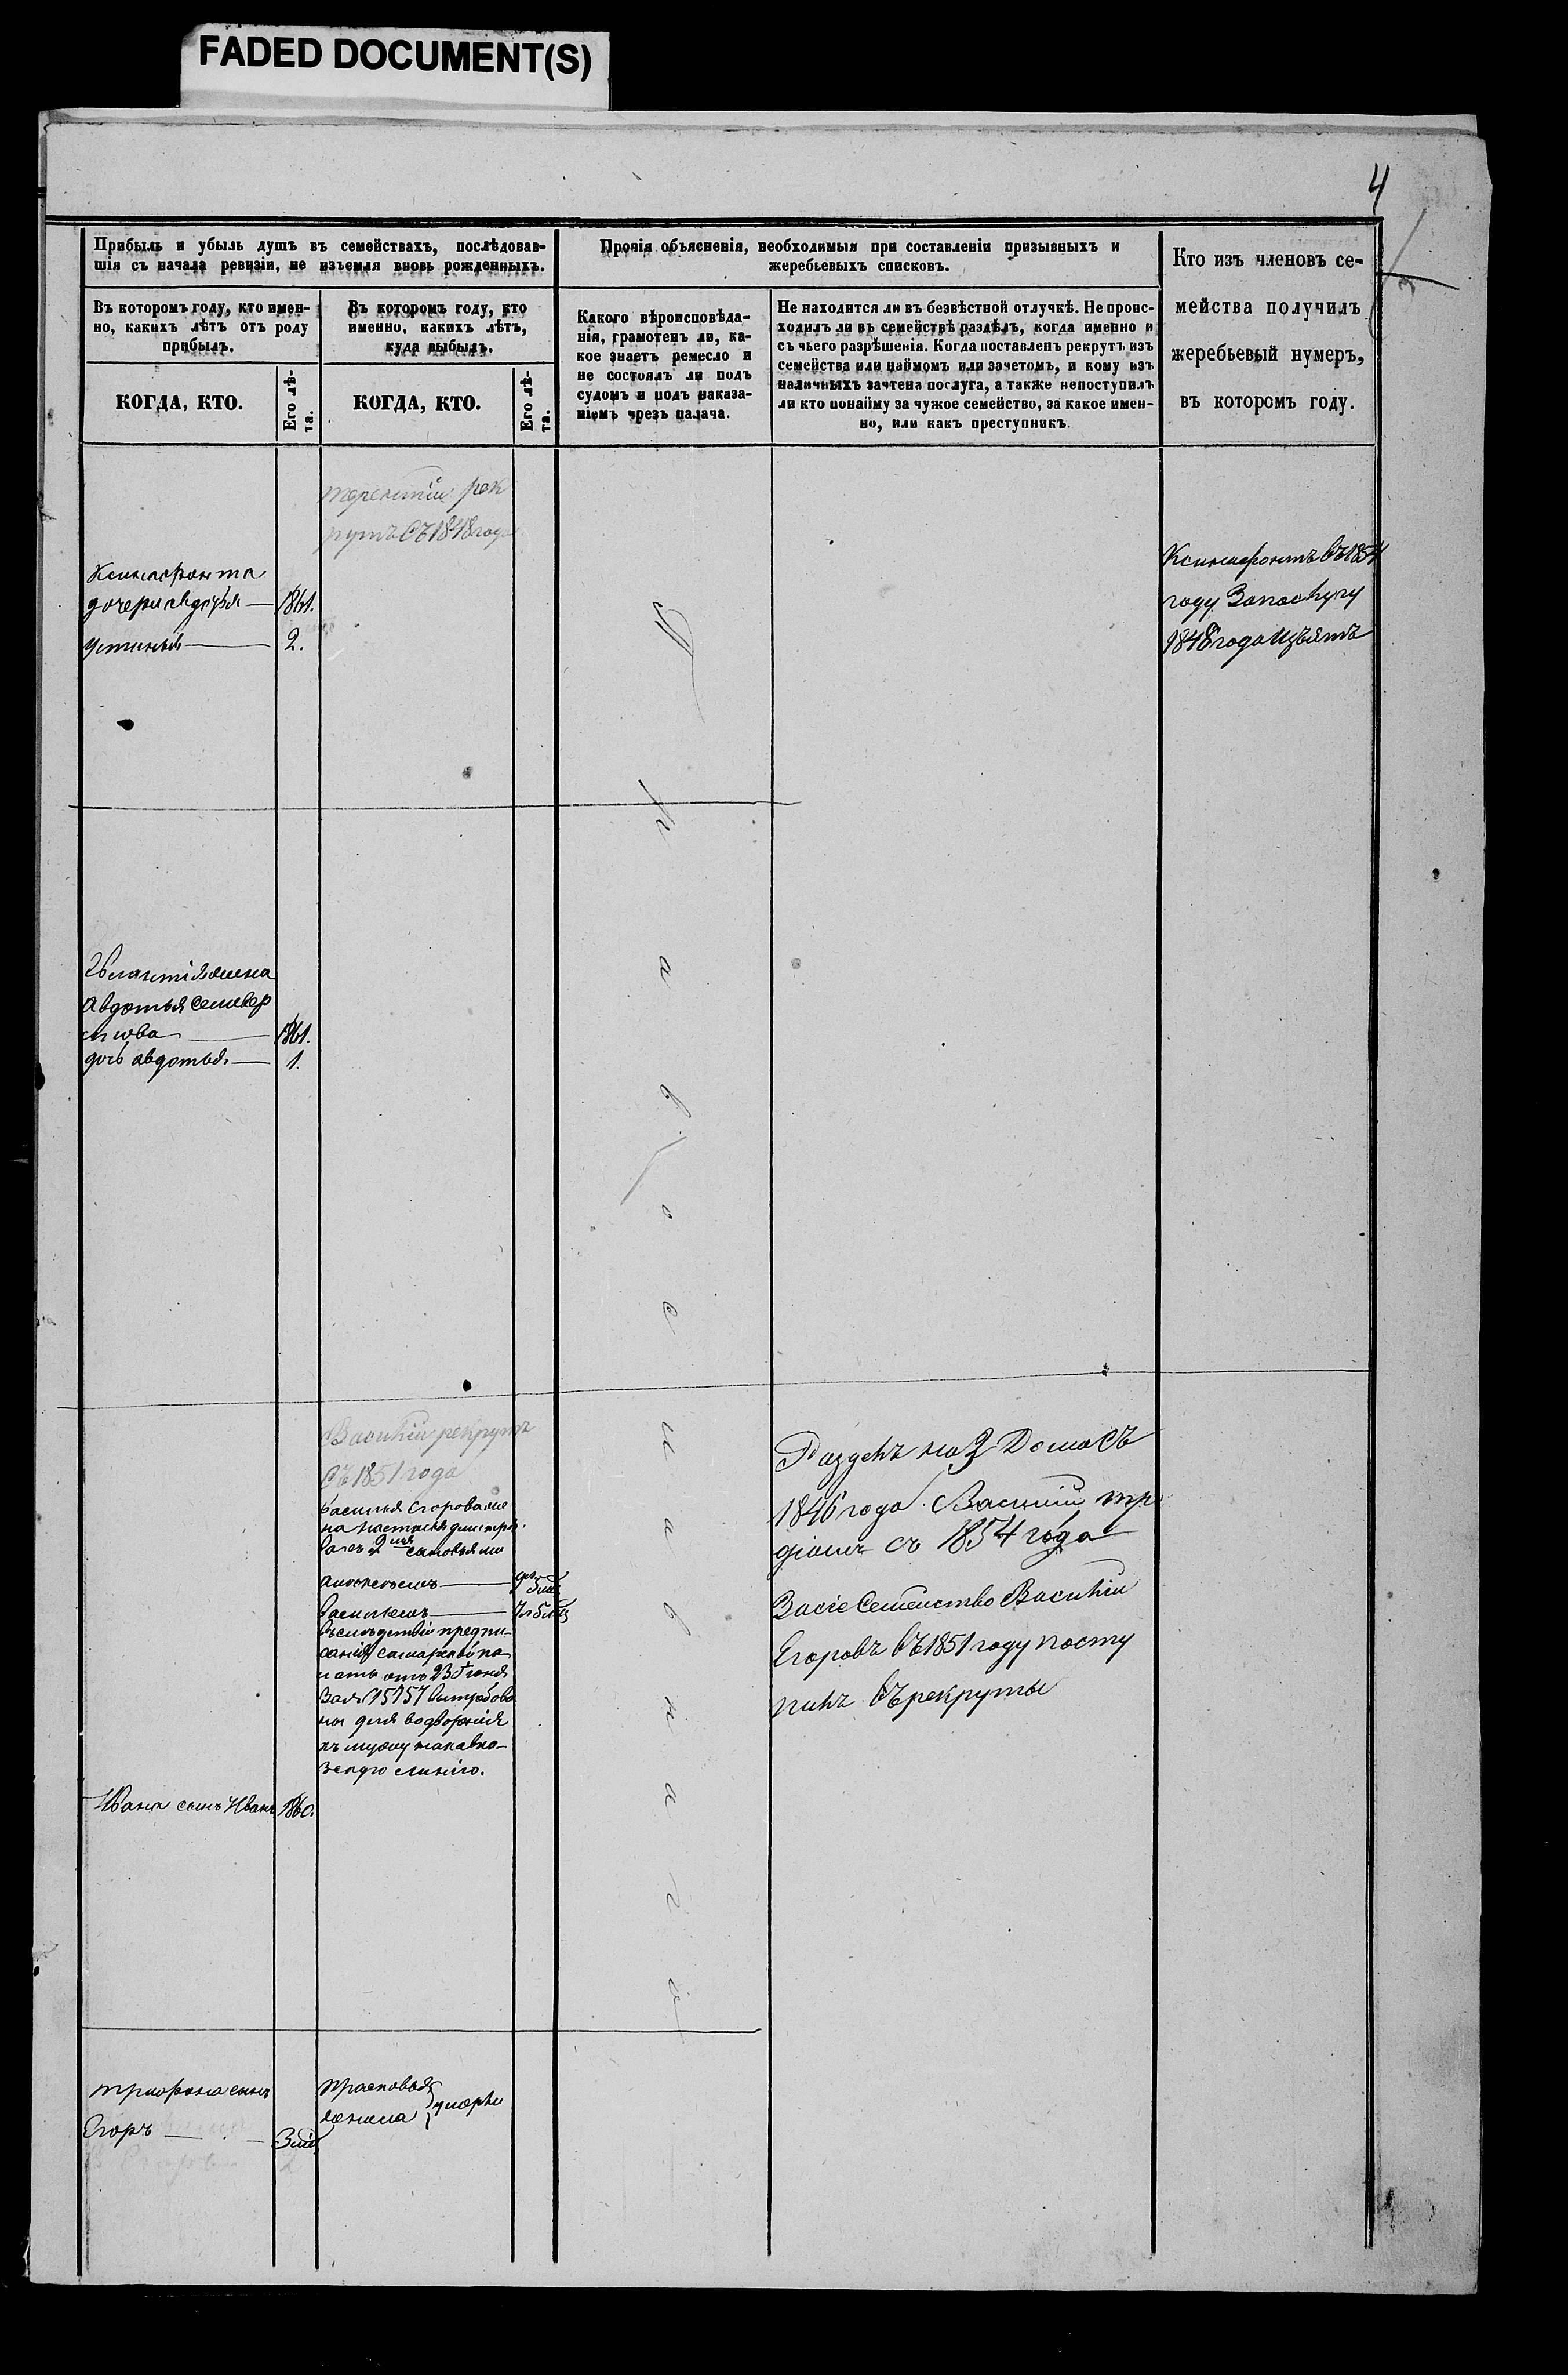 FADED DOCUMENT(S)
4
Прибыль и убыль душъ въ семействахъ, послѣдовав-
шія съ начала ревизіи, не изъемля вновь рожденныхъ.
Прочія объясненія, необходимыя при составленіи призывныхъ и
жеребьевыхъ списковъ.
Кто изъ членовъ се-
мейства получилъ
жеребьевый нумеръ,
въ которомъ году.
Въ которомъ году, кто имен-
но, какихъ лѣтъ отъ роду
прибылъ.
Въ которомъ году, кто
именно, какихъ лѣтъ,
куда выбылъ.
Какого вѣроисповѣда-
нія, грамотенъ ли, ка-
кое знаетъ ремесло и
не состоялъ ли подъ
судомъ и подъ наказа-
ніемъ чрезъ палача.
Не находится ли въ безвѣстной отлучкѣ. Не проис-
ходилъ ли въ семействѣ раздѣлъ, когда именно и
съ чьего разрѣшенія. Когда поставленъ рекрутъ изъ
семейства или наймомъ или зачетомъ, и кому изъ
наличныхъ зачтена послуга, а также непоступилъ
ли кто понайму за чужое семейство, за какое имен-
но, или какъ преступникъ.
КОГДА, КТО.
Его лѣ-
та.
КОГДА, КТО.
Его лѣ-
та.
терентій рек
рутъ съ 1848 года
Ксинафонта
дочери авдотья — 1861.
устинья — 2.
Ксинафонтъ въ 1854
году Запослугу
1848 года изъятъ
жена
авдотья селивер
стова — 1861.
дочь авдотья — 1.
Православнаго
Василій рекрутъ
съ 1851 года
василья Егорова же
на настасья дмитрі
ва съ 2мя сыновьями
василіемъ
въследствіи предпи-
санія самарской па
латы отъ 23 Іюня
за № 15757 вытребова
ны для водворенія
къ мужу накавка-
зскую линію.
Раздѣлъ на 3 Дома съ
1846 года. Василій
съ 1854 года
Засіе Семейство Василій
Егоровъ въ 1851 году посту
пилъ въ рекруты
Ивана сынъ Иванъ 1860.
трифона сынъ
Егоръ — 3 мѣ
Прасковья
умерли